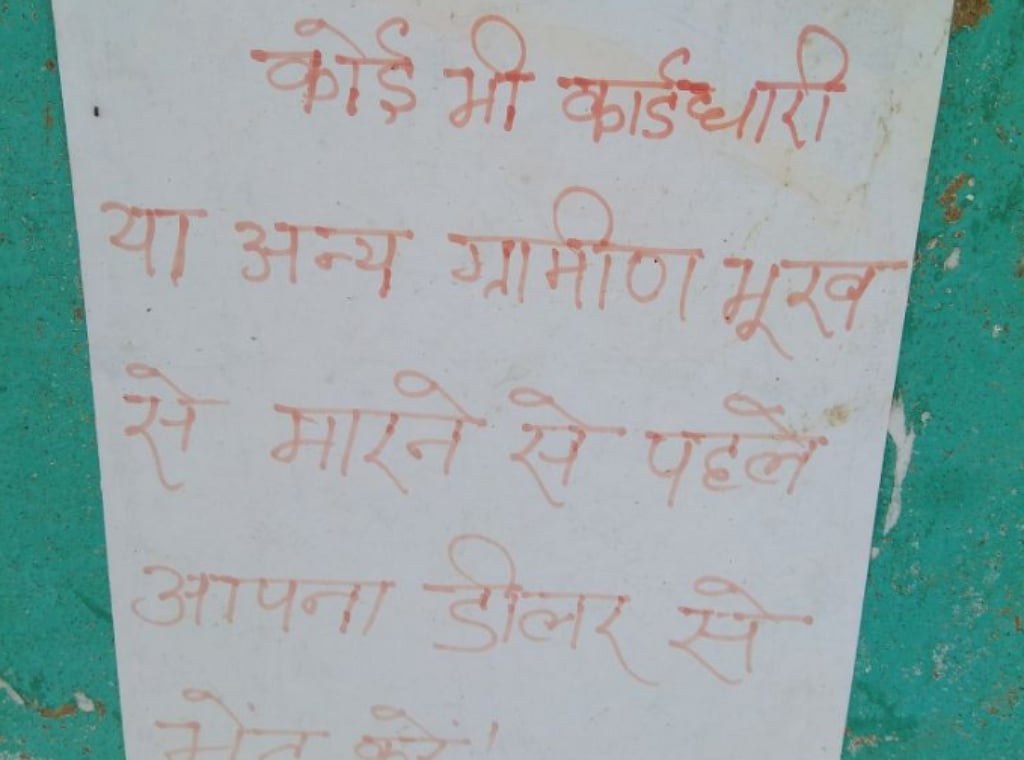 कोई भी कार्डधारी
या अन्य ग्रामीण भूख
से मारने से पहले
आपना डीलर से
भेंट करें।